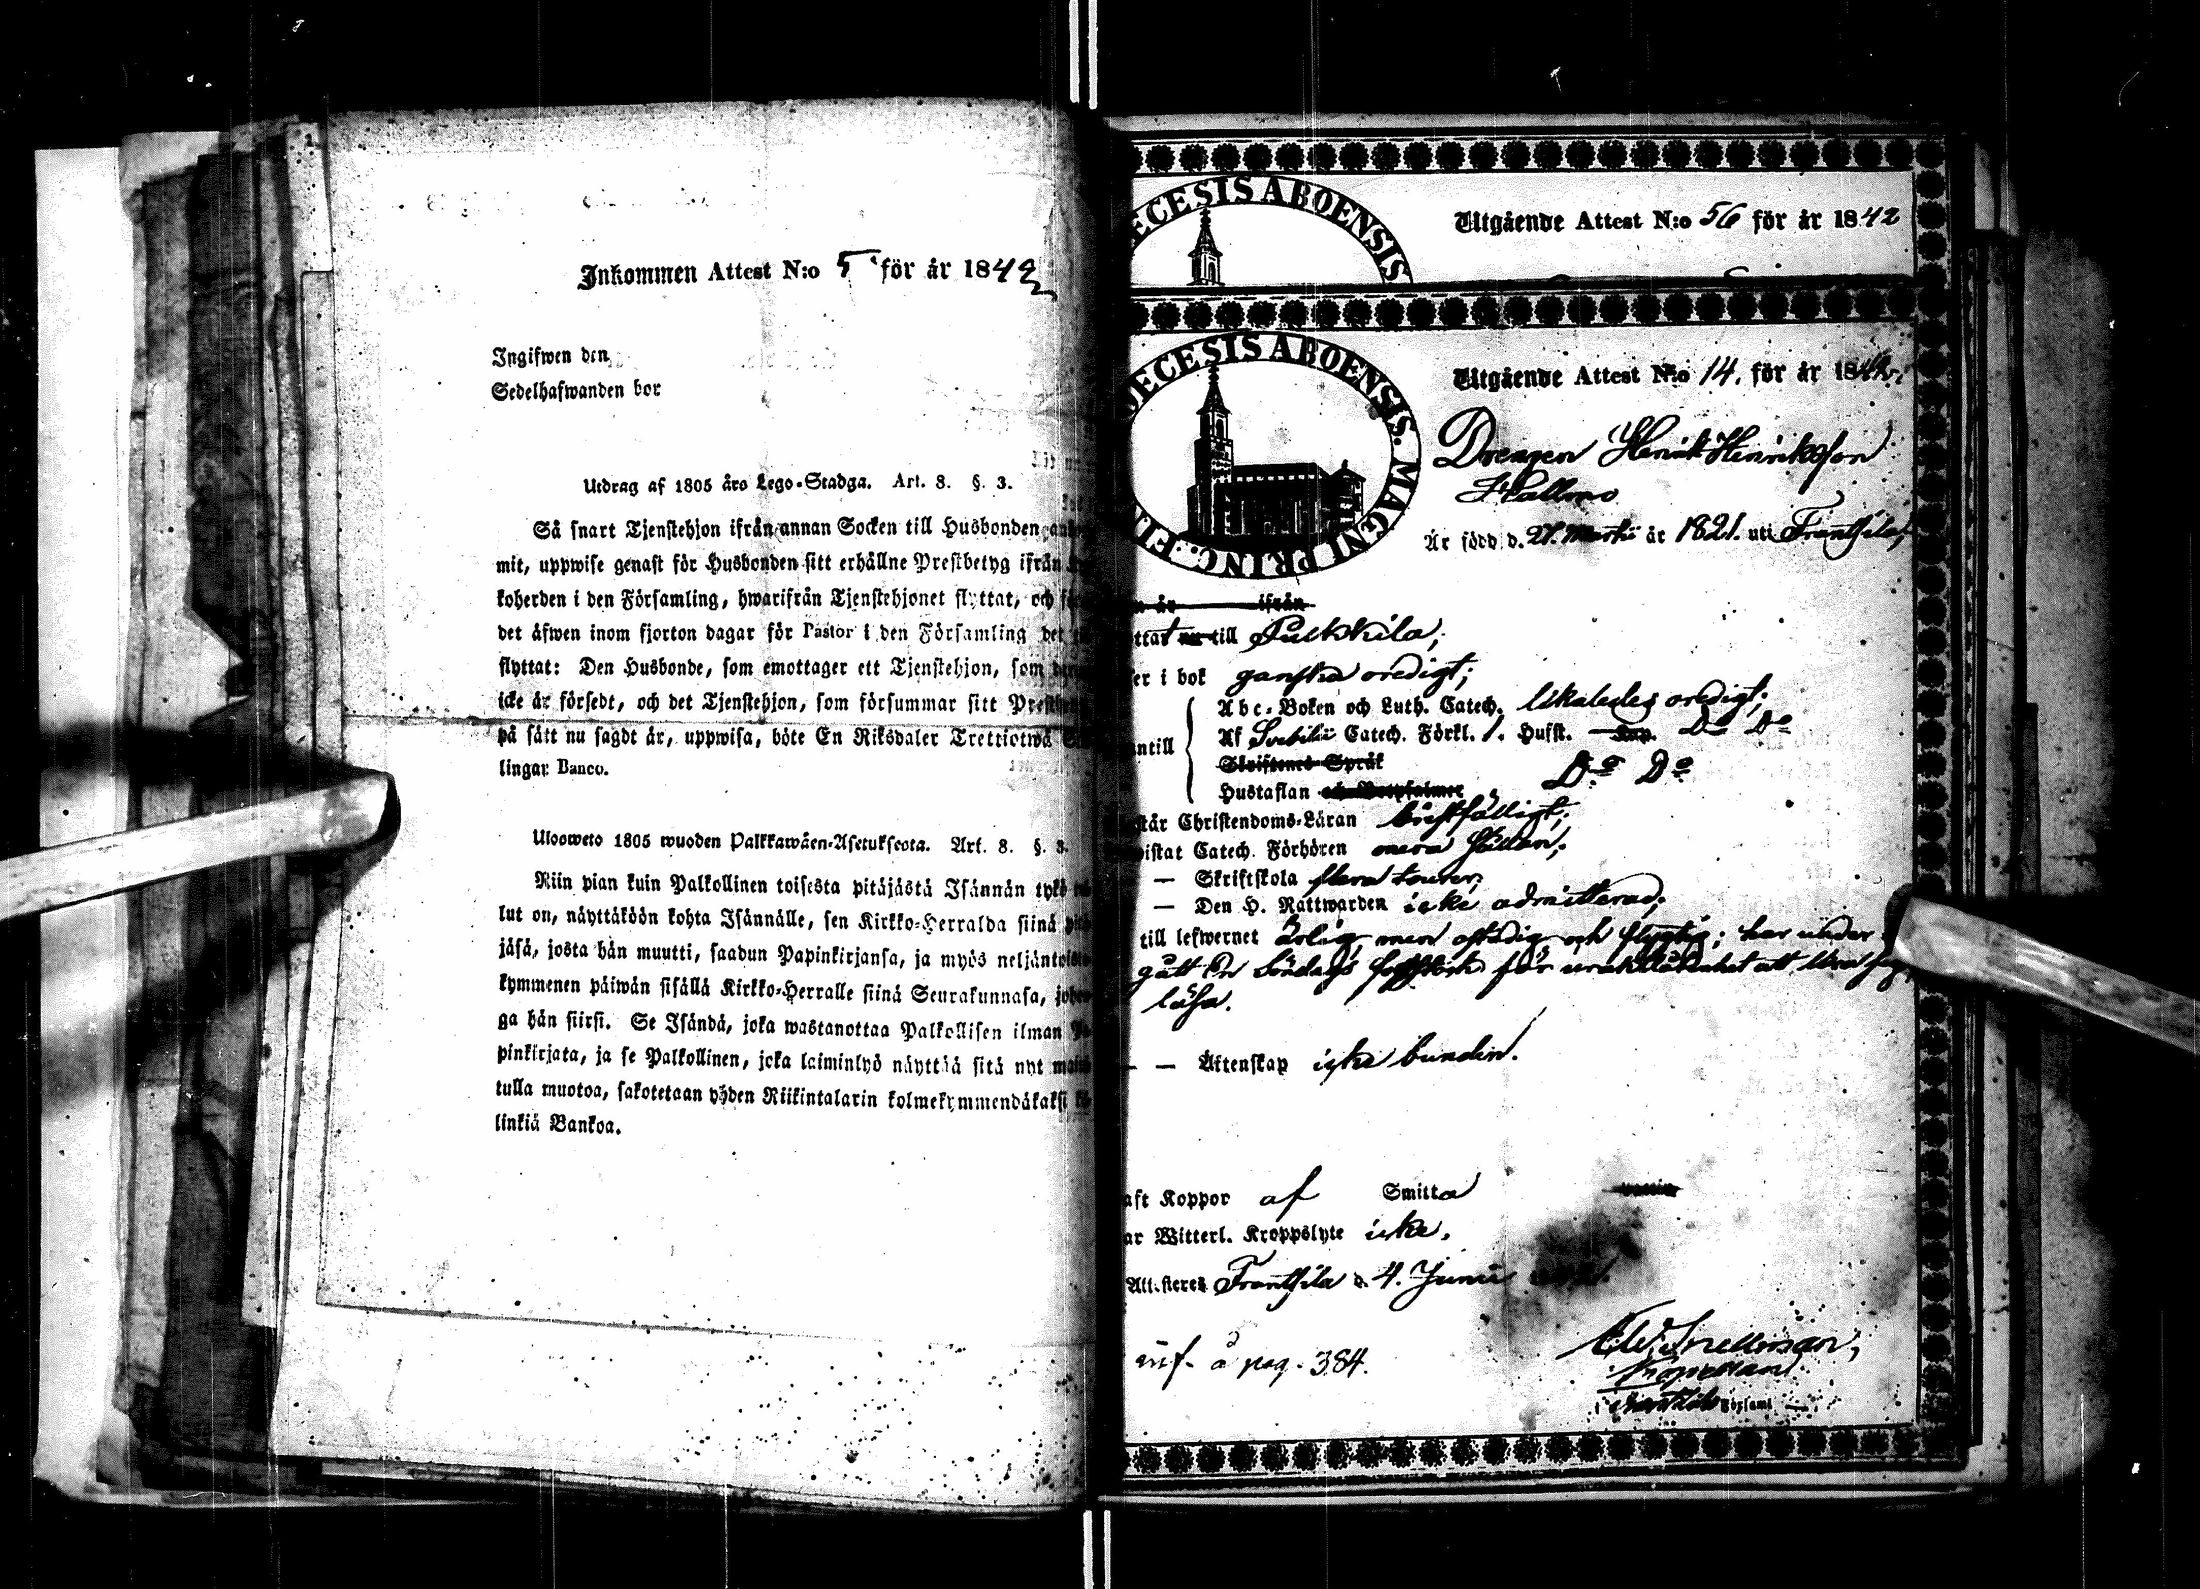 Inkommen Attest N:o 5 för år 1842
Ingifwen den
Sedelhafwanden bor
Utdrag af 1805 års Lego-Stadga. Art. 8. §. 3.
Så snart Tjenstehjon ifrån annan Socken till Husbonden
mit, uppwise genast för Husbonden sitt erhållne Prestbetyg ifrån
koherden i den Församling, hwarifrån Tjenstehjonet flyttat, och
det äfwen inom fjorton dagar för Pastor i den Församling det
flyttat: Den Husbonde, som emottager ett Tjenstehjon, som
icke är försedt, och det Tjenstehjon, som försummar sitt
på sätt nu sagdt är, uppwisa, böte En Riksdaler Trettiotwå
lingar Banco.
Ulosweto 1805 wuoden Palkkawäen-Asetuksesta. Art. 8. §. 3.
Niin pian kuin Palkollinen toisesta pitäjästä Isännän tykö
lut on, näyttäköön kohta Isännälle, sen Kirkko-Herralda siinä
jäsä, josta hän muutti, saadun Papinkirjansa, ja myös neljäntoista
kymmenen päiwän sisällä Kirkko-Herralle siinä Seurakunnasa,
ga hän siirsi. Se Isändä, joka wastanottaa Palkollisen ilman
pinkirjata, ja se Palkollinen, joka laiminlyö näyttää sitä nyt
tulla muotoa, sakotetaan yhden Riikintalarin kolmekymmendäkaksi
linkiä Bankoa.
ECESIS ABOENSIS
Utgående Attest N:o 56 för år 1842
OECESIS ABOENSIS. MAGNI PRINC. FI
Utgående Attest N:o 14. för år 1842.
Drengen Henrik Henriksson
Är född d. 27. Martii år 1821. uti Frantsila,
år ifrån
ttat nu till Pulkkila;
er i bok ganska oredigt;
Abc-Boken och Luth. Catech. likaledes oredigt;
ntill Af Svebilii Catech. Förkl. 1. Hufst. Do Do
Skriftenes Språk
Hustaflan Do Do
tår Christendoms-Läran bristfälligt;
istat Catech. Förhören
— Skriftskola flera tourer;
— Den H. Nattwarden icke admitterad;
till lefwernet ärlig, men ostadig och flygtig; har under-
gått en Söndags för att lära sig
läsa.
— — Äktenskap icke bunden.
aft Koppor af Smitta
ar Witterl. Kroppslyte icke.
Attesteres Frantsila d. 4. Junii
inf. å pag. 384.
Snellman,
Kapellan
i Frantsila Församl.